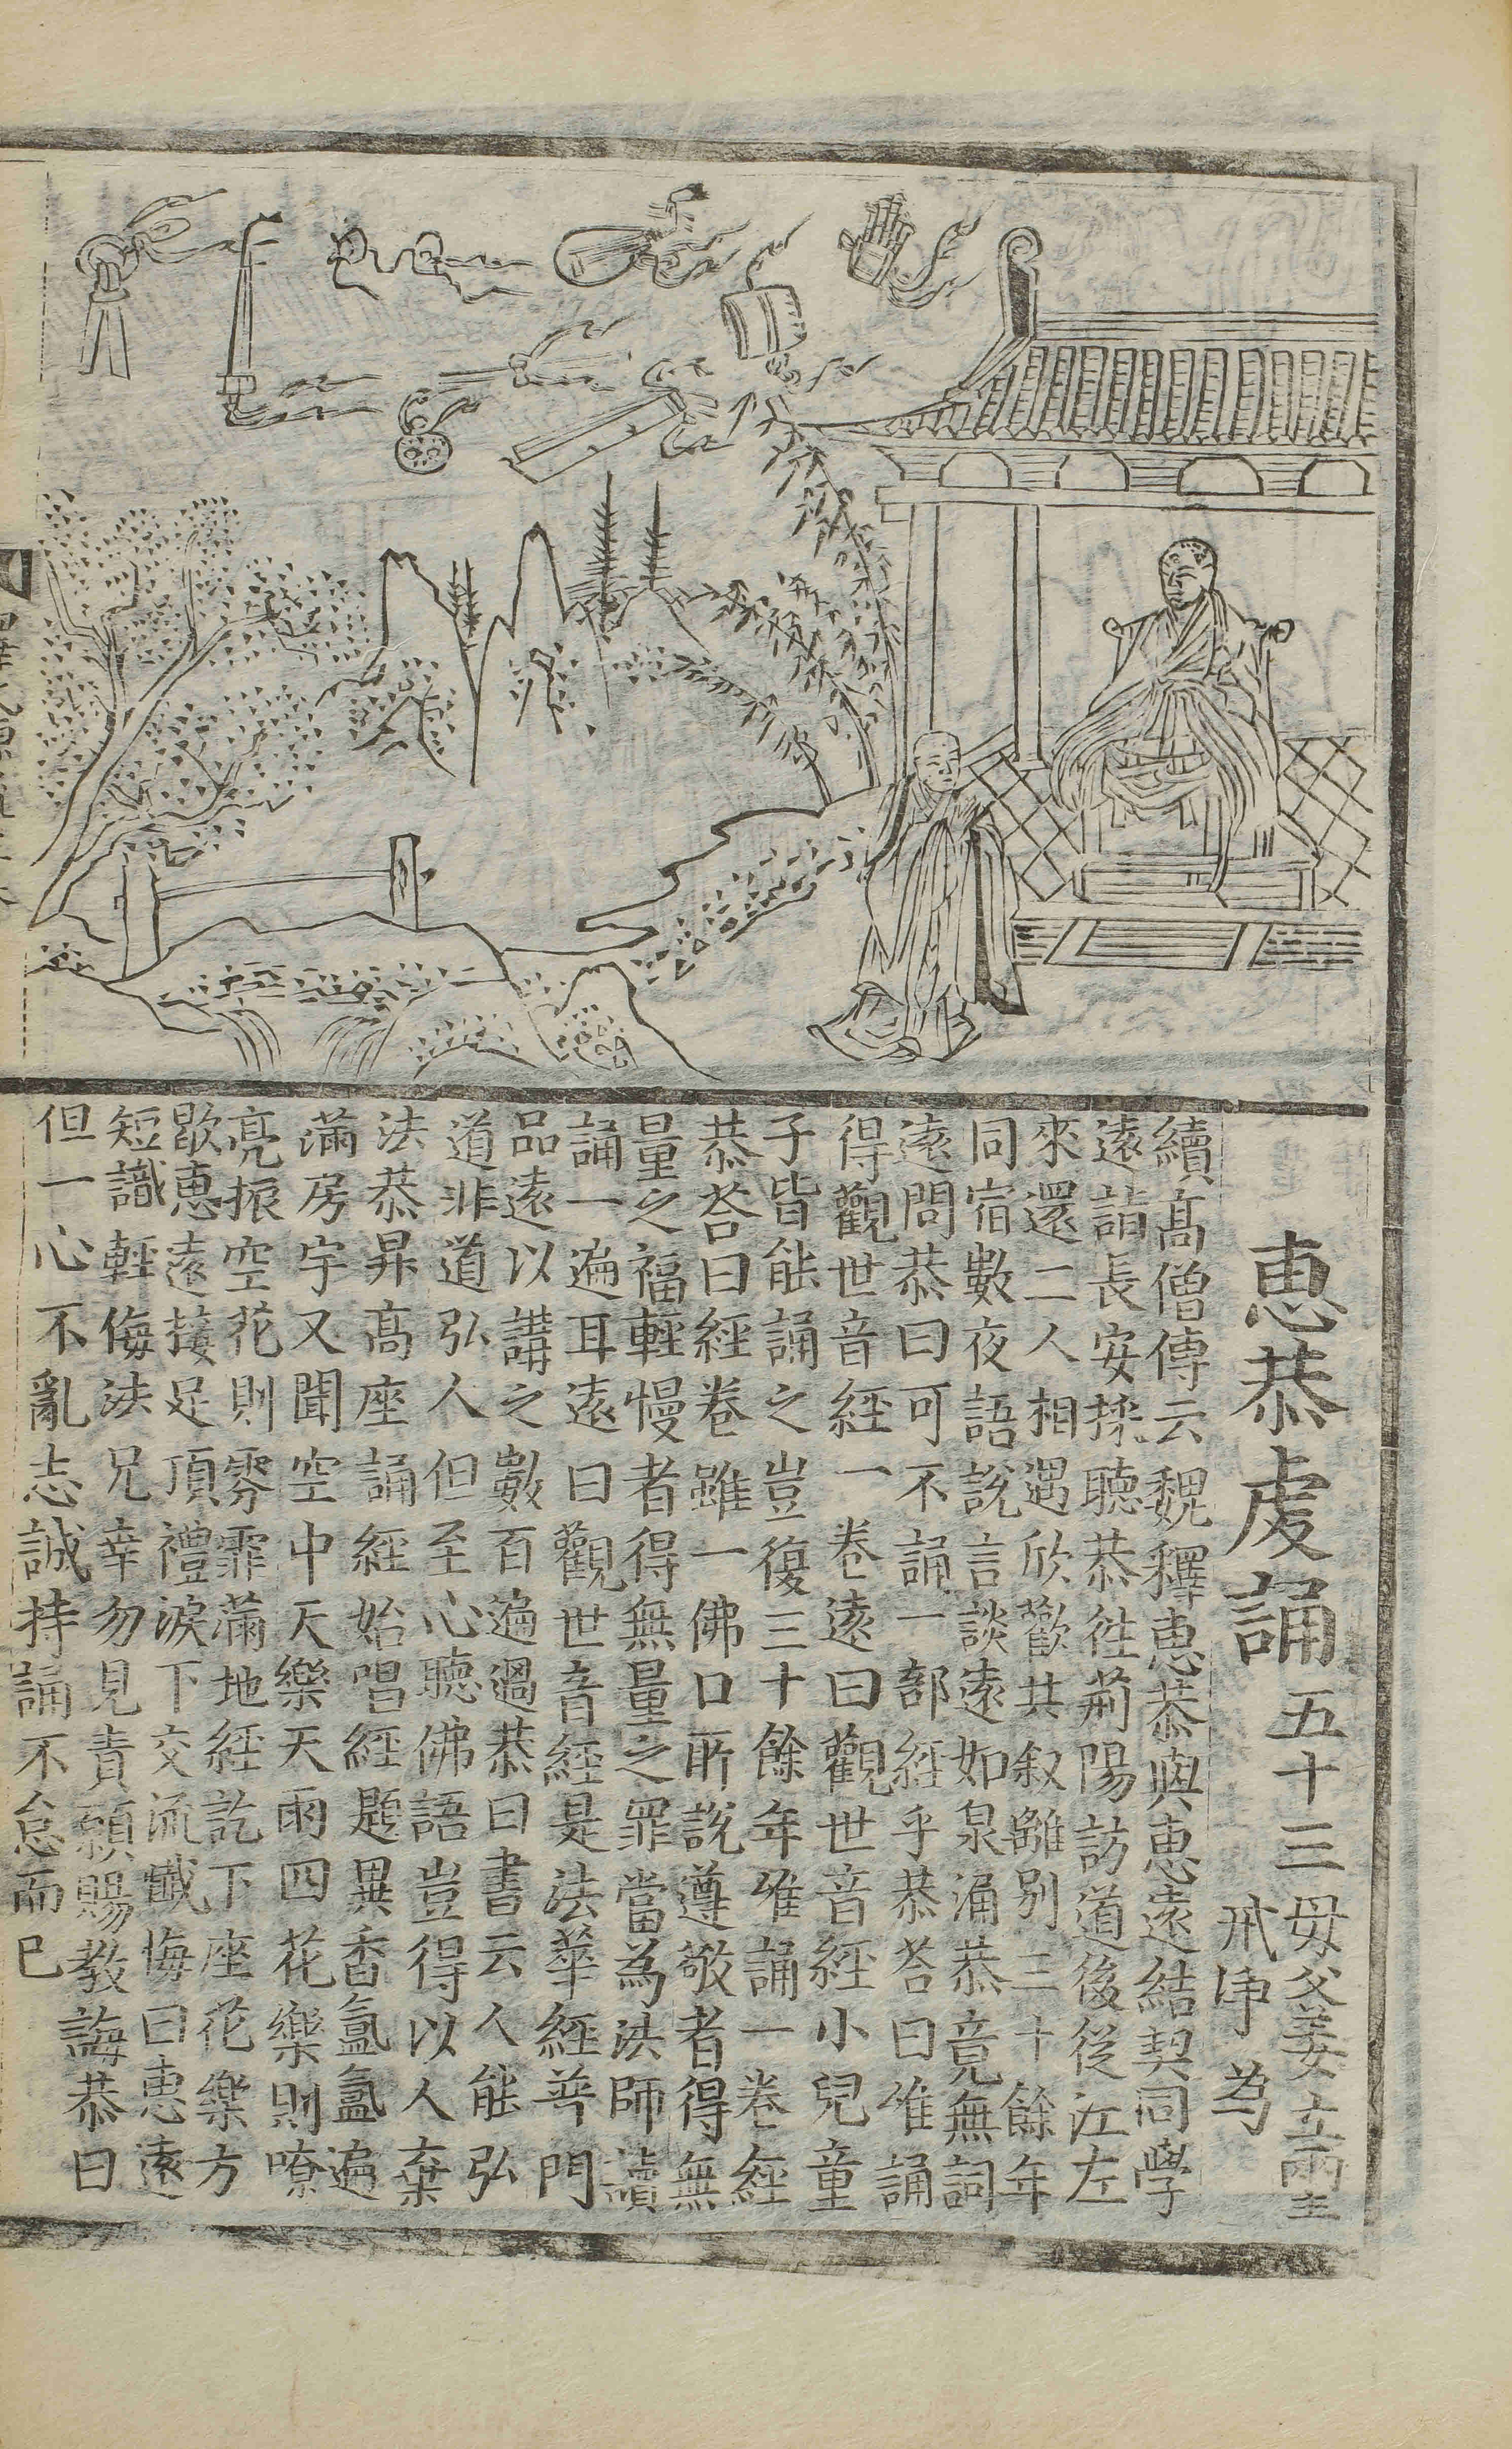 惠恭虔誦 五十三
毋父姜立兩主
戒淨 為
續髙僧傳云魏釋惠恭與惠遠結契同學
遠詣長安揉聽恭徃荊陽訪道後從江左
來還二人相遇欣歡共叙離别三十餘年
同宿數夜語說言談遠如泉涌恭竟無詞
遠問恭曰可不誦一部經乎恭荅曰唯誦
得觀世音經一卷遠曰觀世音經小兒童
子皆能誦之豈復三十餘年唯誦一卷經
恭荅曰經卷雖一佛口所說遵敬者得無
量之福輕慢者得無量之罪當為法師讀
誦一遍耳遠曰觀世音經是法華經普門
品遠以講之數百遍過恭曰書云人能弘
道非道弘人但至心聽佛語豈得以人棄
法恭昇髙座誦經始唱經題異香氤氳遍
滿房宇又聞空中天樂天雨四花樂則嘹
亮振空花則雰霏滿地經訖下座花樂方
歇惠遠接足頂禮淚下交流懺悔曰惠遠
短識輕侮法兄幸勿見責願賜教誨恭曰
但一心不亂志誠持誦不怠而已